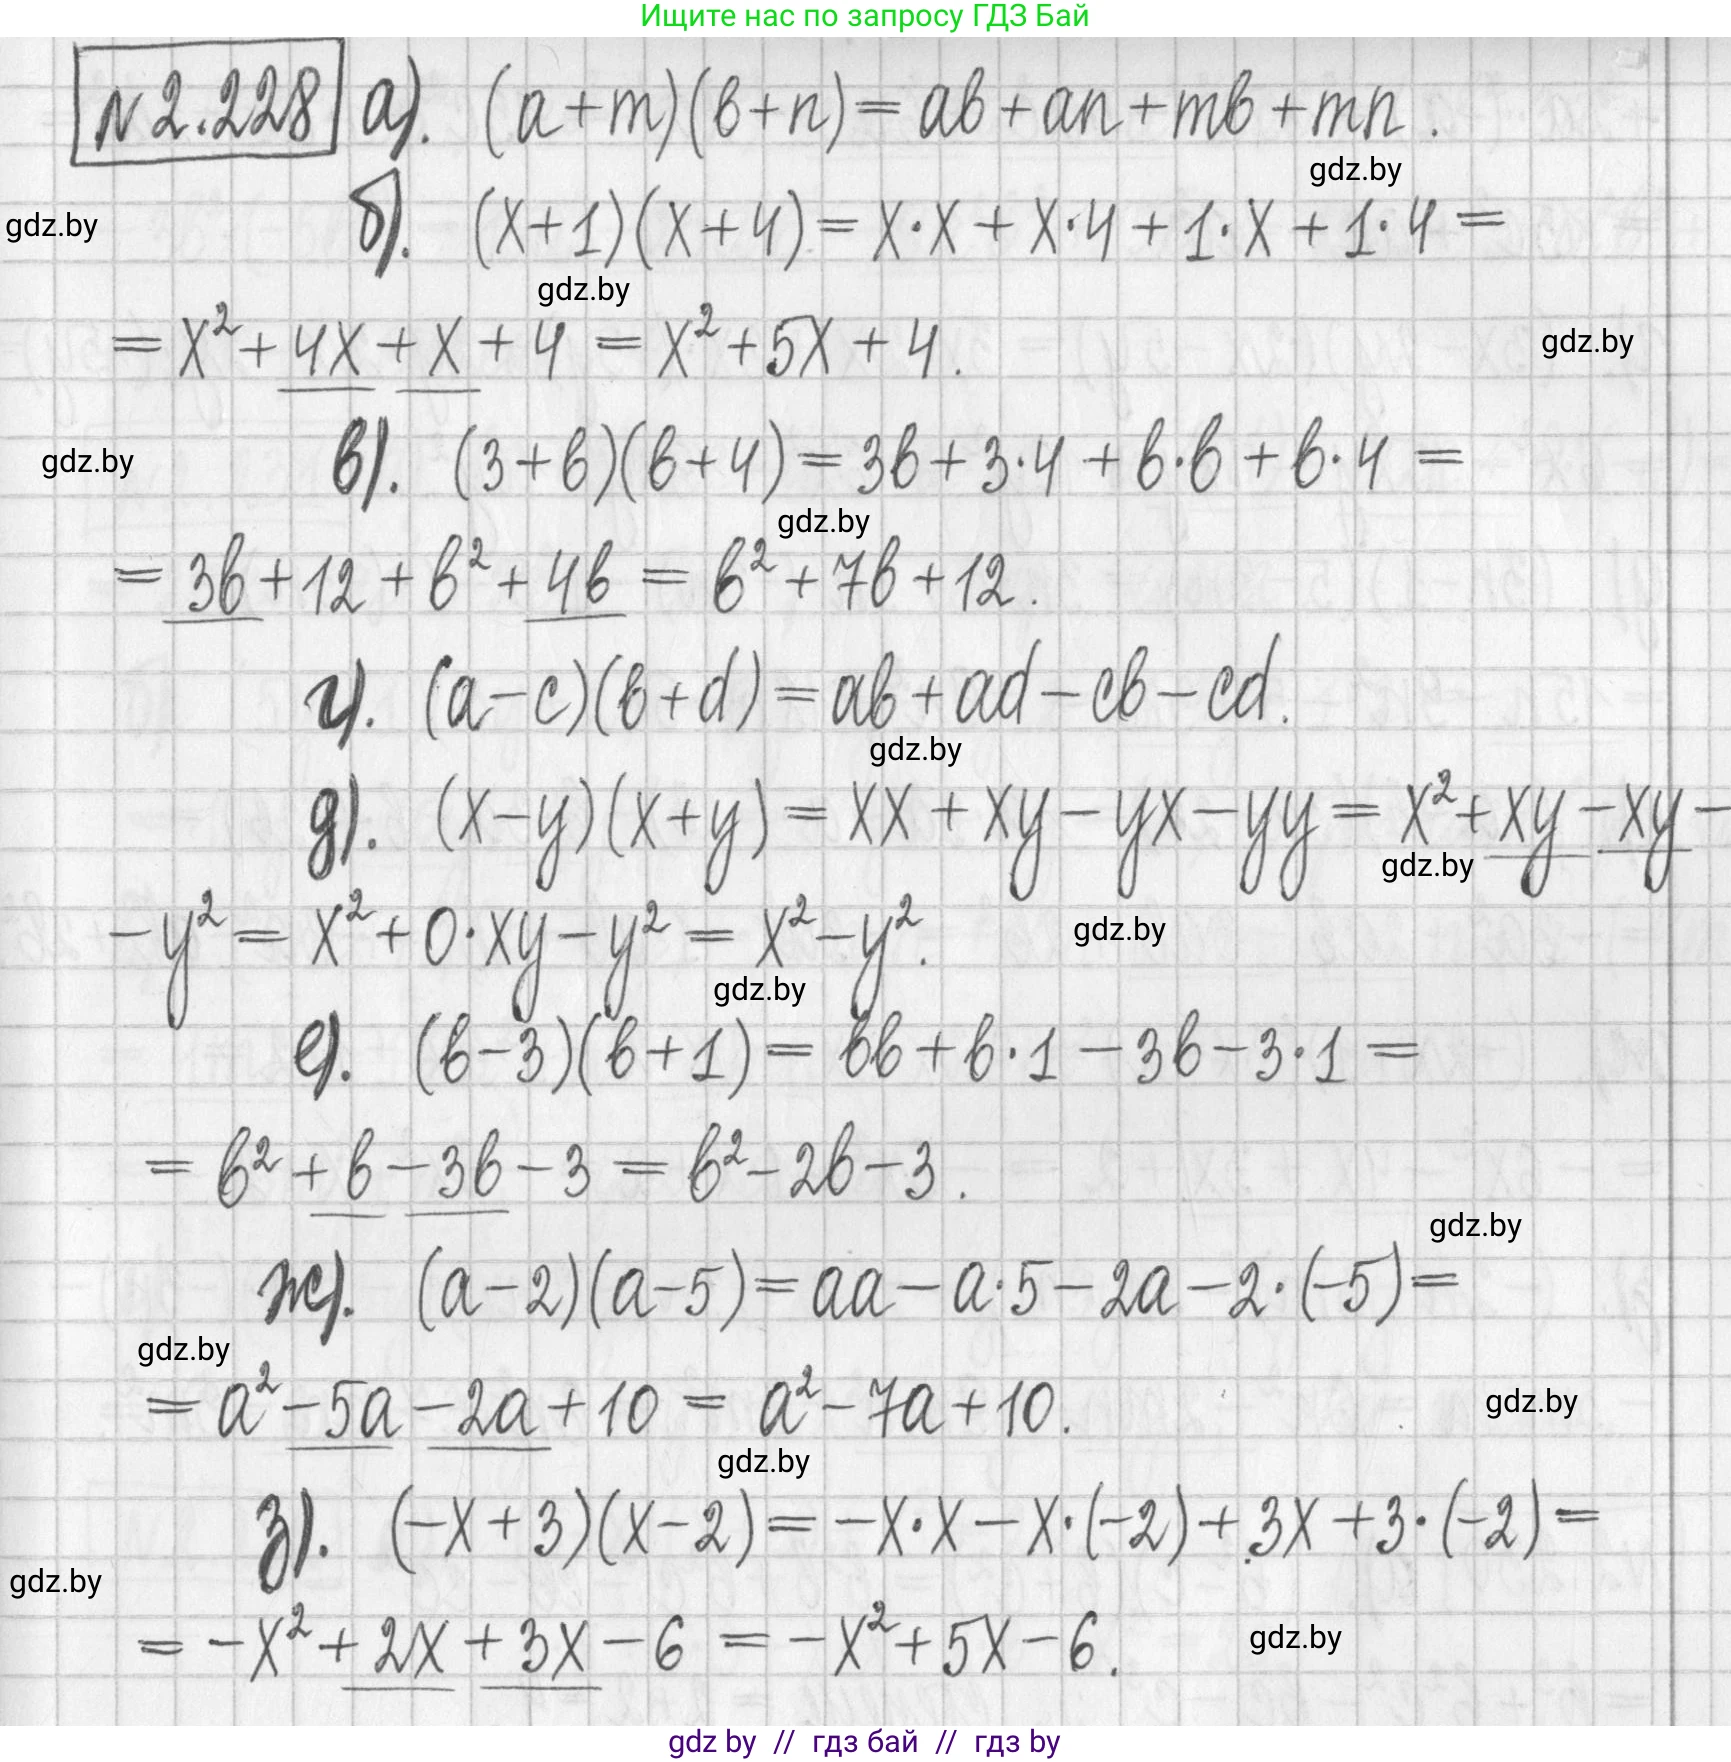 Ищите нас по запросу ГДЗ Бай
N 2.228 а). (a+m)(b+n)=ab+an+mb+mn.
gdz.by
gdz.by
б). (x+1)(x+4)=x·x+x·4+1·x+1·4=
gdz.by
=x²+4x+x+4=x²+5x+4.
gdz.by
gdz.by
в). (3+b)(b+4)=3b+3·4+b·b+b·4=
gdz.by
=3b+12+b²+4b=b²+7b+12.
г). (a-c)(b+d)=ab+ad-cb-cd.
gdz.by
д). (x-y)(x+y)=xx+xy-yx-yy=x²+xy-xy-
gdz.by
-y²=x²+0·xy-y²=x²-y².
gdz.by
gdz.by
е). (b-3)(b+1)=bb+b·1-3b-3·1=
=b²+b-3b-3=b²-2b-3.
gdz.by
ж). (a-2)(a-5)=aa-a·5-2a-2·(-5)=
gdz.by
=a²-5a-2a+10=a²-7a+10.
gdz.by
gdz.by
з). (-x+3)(x-2)=-x·x-x·(-2)+3x+3·(-2)=
gdz.by
=-x²+2x+3x-6=-x²+5x-6.
gdz.by
gdz by // гдз бай // гдз by